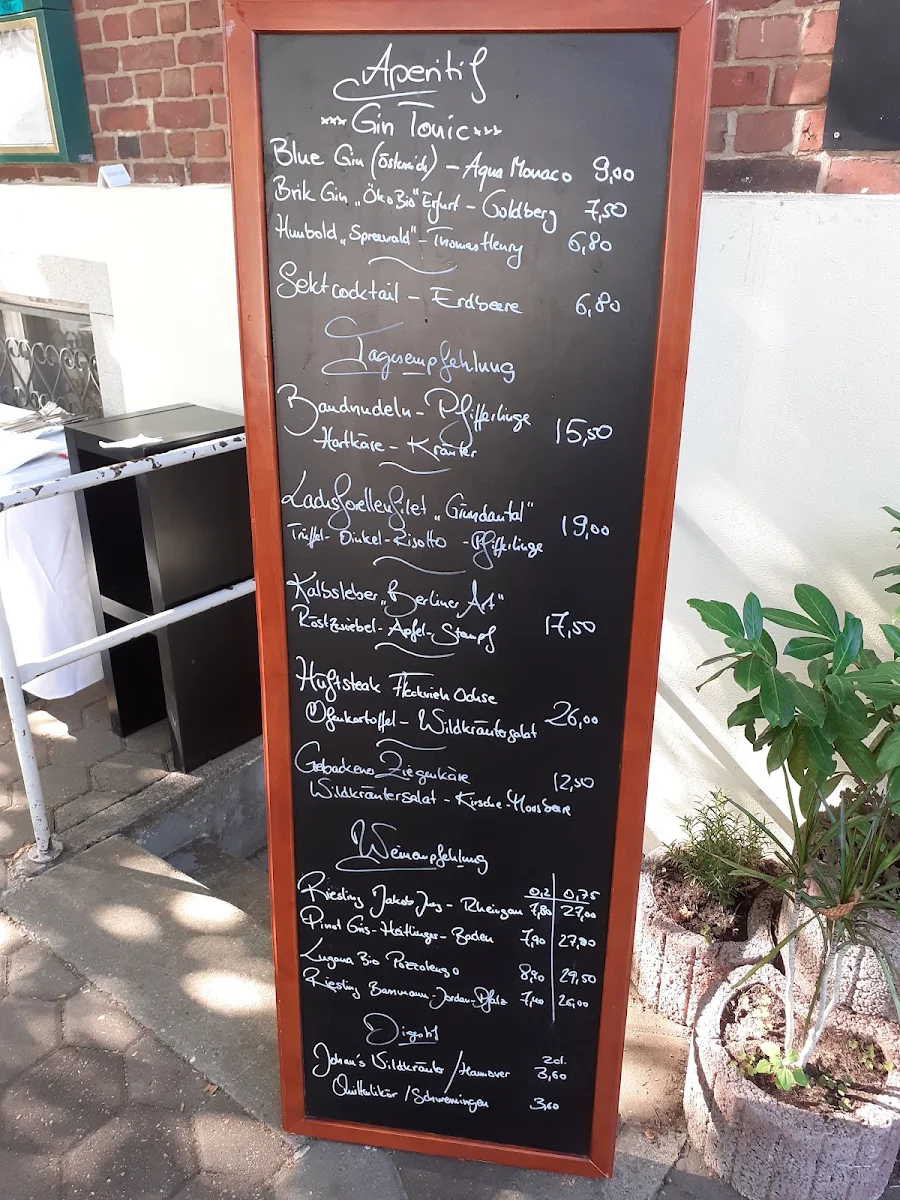 Aperitif
*** Gin Tonic ***
Blue Gin (Östereich) - Aqua Monaco 9,00
Brik Gin „Öko Bio" Erfurt - Goldberg 7,50
Humbold „Spreewald" - Thomas Henry 6,80
Sektcocktail - Erdbeere 6,80
Tagesempfehlung
Bandnudeln - Pfifferlinge 15,50
Hartkäse - Kräuter
Lachsforellenfilet „Gimdautal" 19,00
Trüffel-Dinkel-Risotto - Pfifferlinge
Kalbsleber „Berliner Art" 17,50
Röstzwiebel-Apfel-Stampf
Hüftsteak Fleckvieh Ochse 26,00
Ofenkartoffel - Wildkräutersalat
Gebackener Ziegenkäse 12,50
Wildkräutersalat - Kirsche-Moosbeere
Weinempfehlung
0,2 0,75
Riesling Jakob Jung - Rheingau 7,80 27,00
Pinot Gris - Heitlinger - Baden 7,90 27,00
Lugana Bio Pozzolengo 8,90 29,50
Riesling Bassermann-Jordan-Pfalz 7,40 26,00
Digestif
2cl.
Johan's Wildkräuter / Hannover 3,60
Quittenlikör / 3,60